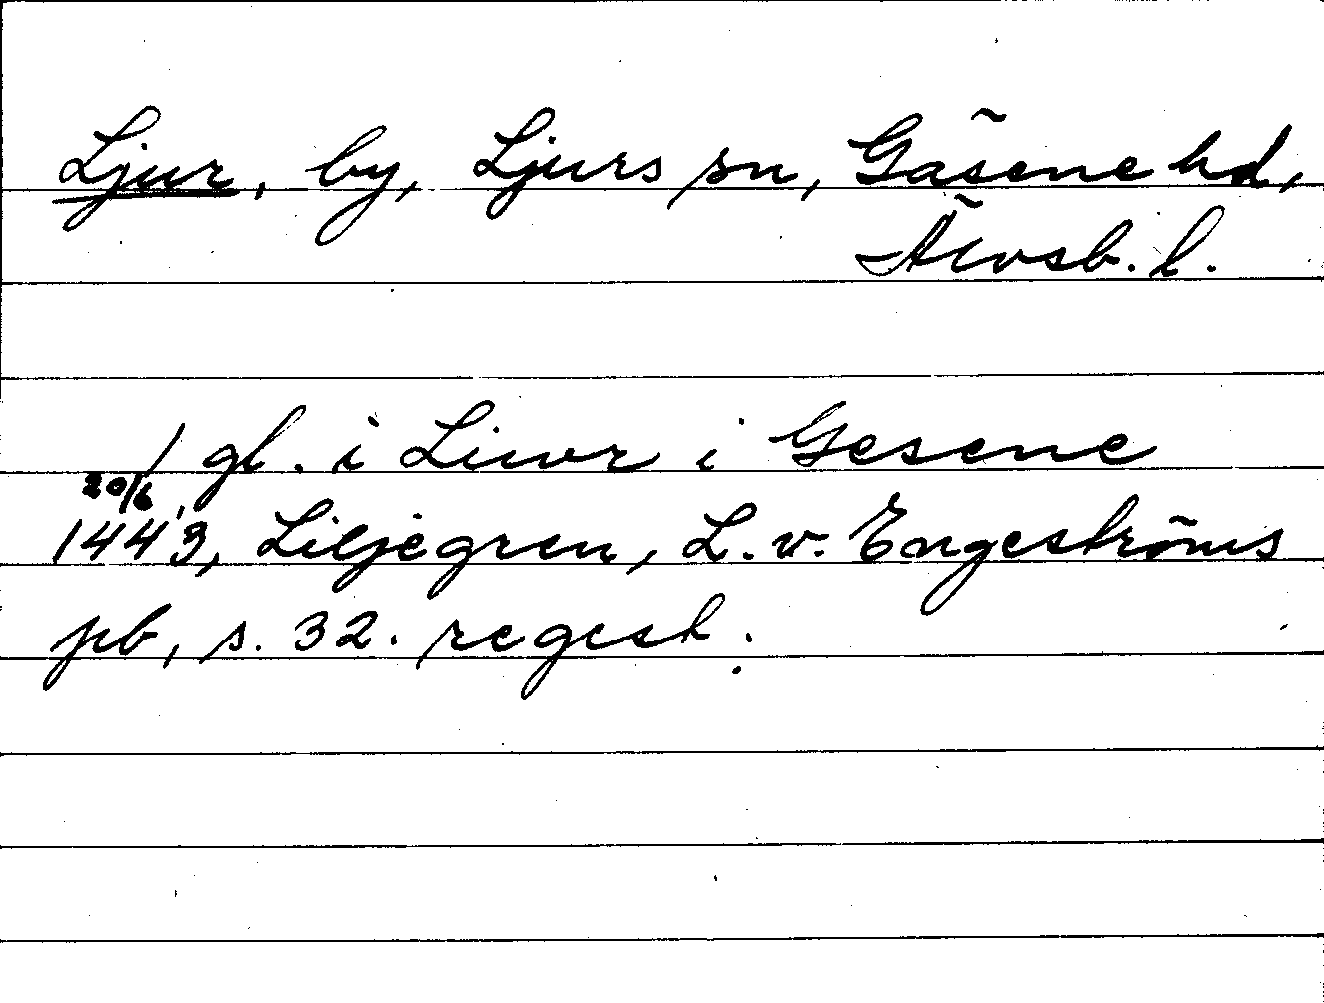 Ljur, by, Ljurs sn, Gäsene hd,
Älvsb. l.
1 gl. i Liwr i Gesene
20/6
1443, Liljegren, L. v. Engeströms
pb, s. 32. regest.